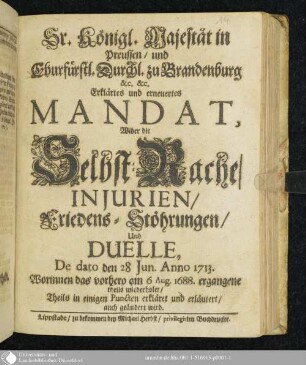 Sr. Königl. Majestät in
Preussen / und
Churfürstl. Durchl. zu Brandenburg
&c. &c.
Erklärtes und erneuertes
MANDAT,
Wider die
Selbst-Rache /
INJURIEN /
Friedens-Stöhrungen /
Und
DUELLE,
De dato den 28 Jun. Anno 1713.
Worinnen das vorhero am 6 Aug. 1688. ergangene
theils wiederholet /
Theils in einigen Puncten erklärt und erläutert /
auch geändert wird.
Lippstadt / zu bekommen bey Michael Herbst / privilegirten Buchdrucker.